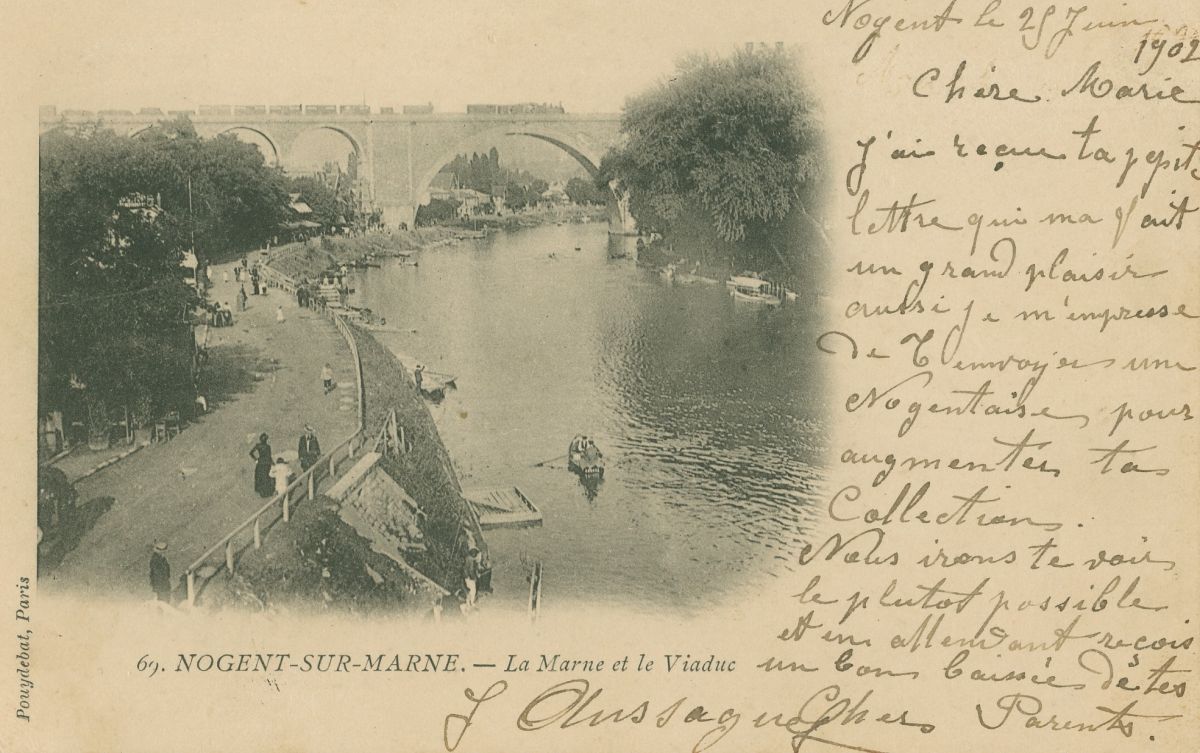 Nogent le 25 Juin
1902
Chère Marie
J'ai reçue ta petite
lettre qui ma fait
un grand plaisir
aussi je m'empresse
de t'envoyer une
Nogentaise pour
augmenter ta
Collection.
Nous irons te voir
le plutot possible
et en attendant recois
un bon baisée de tes
chers Parents.
69. NOGENT-SUR-MARNE. — La Marne et le Viaduc
Pouydebat, Paris